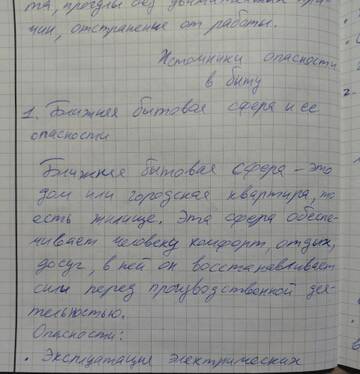 та, прогулы без уважительных при-
чин, отстранение от работы.
Источники опасности
в быту
1. Ближняя бытовая сфера и ее
опасности
Ближняя бытовая сфера – это
дом или городская квартира, то
есть жилище. Эта сфера обеспе-
чивает человеку комфорт, отдых,
досуг, в ней он восстанавливает
силы перед производственной дея-
тельностью.
Опасности:
• Эксплуатация электрических